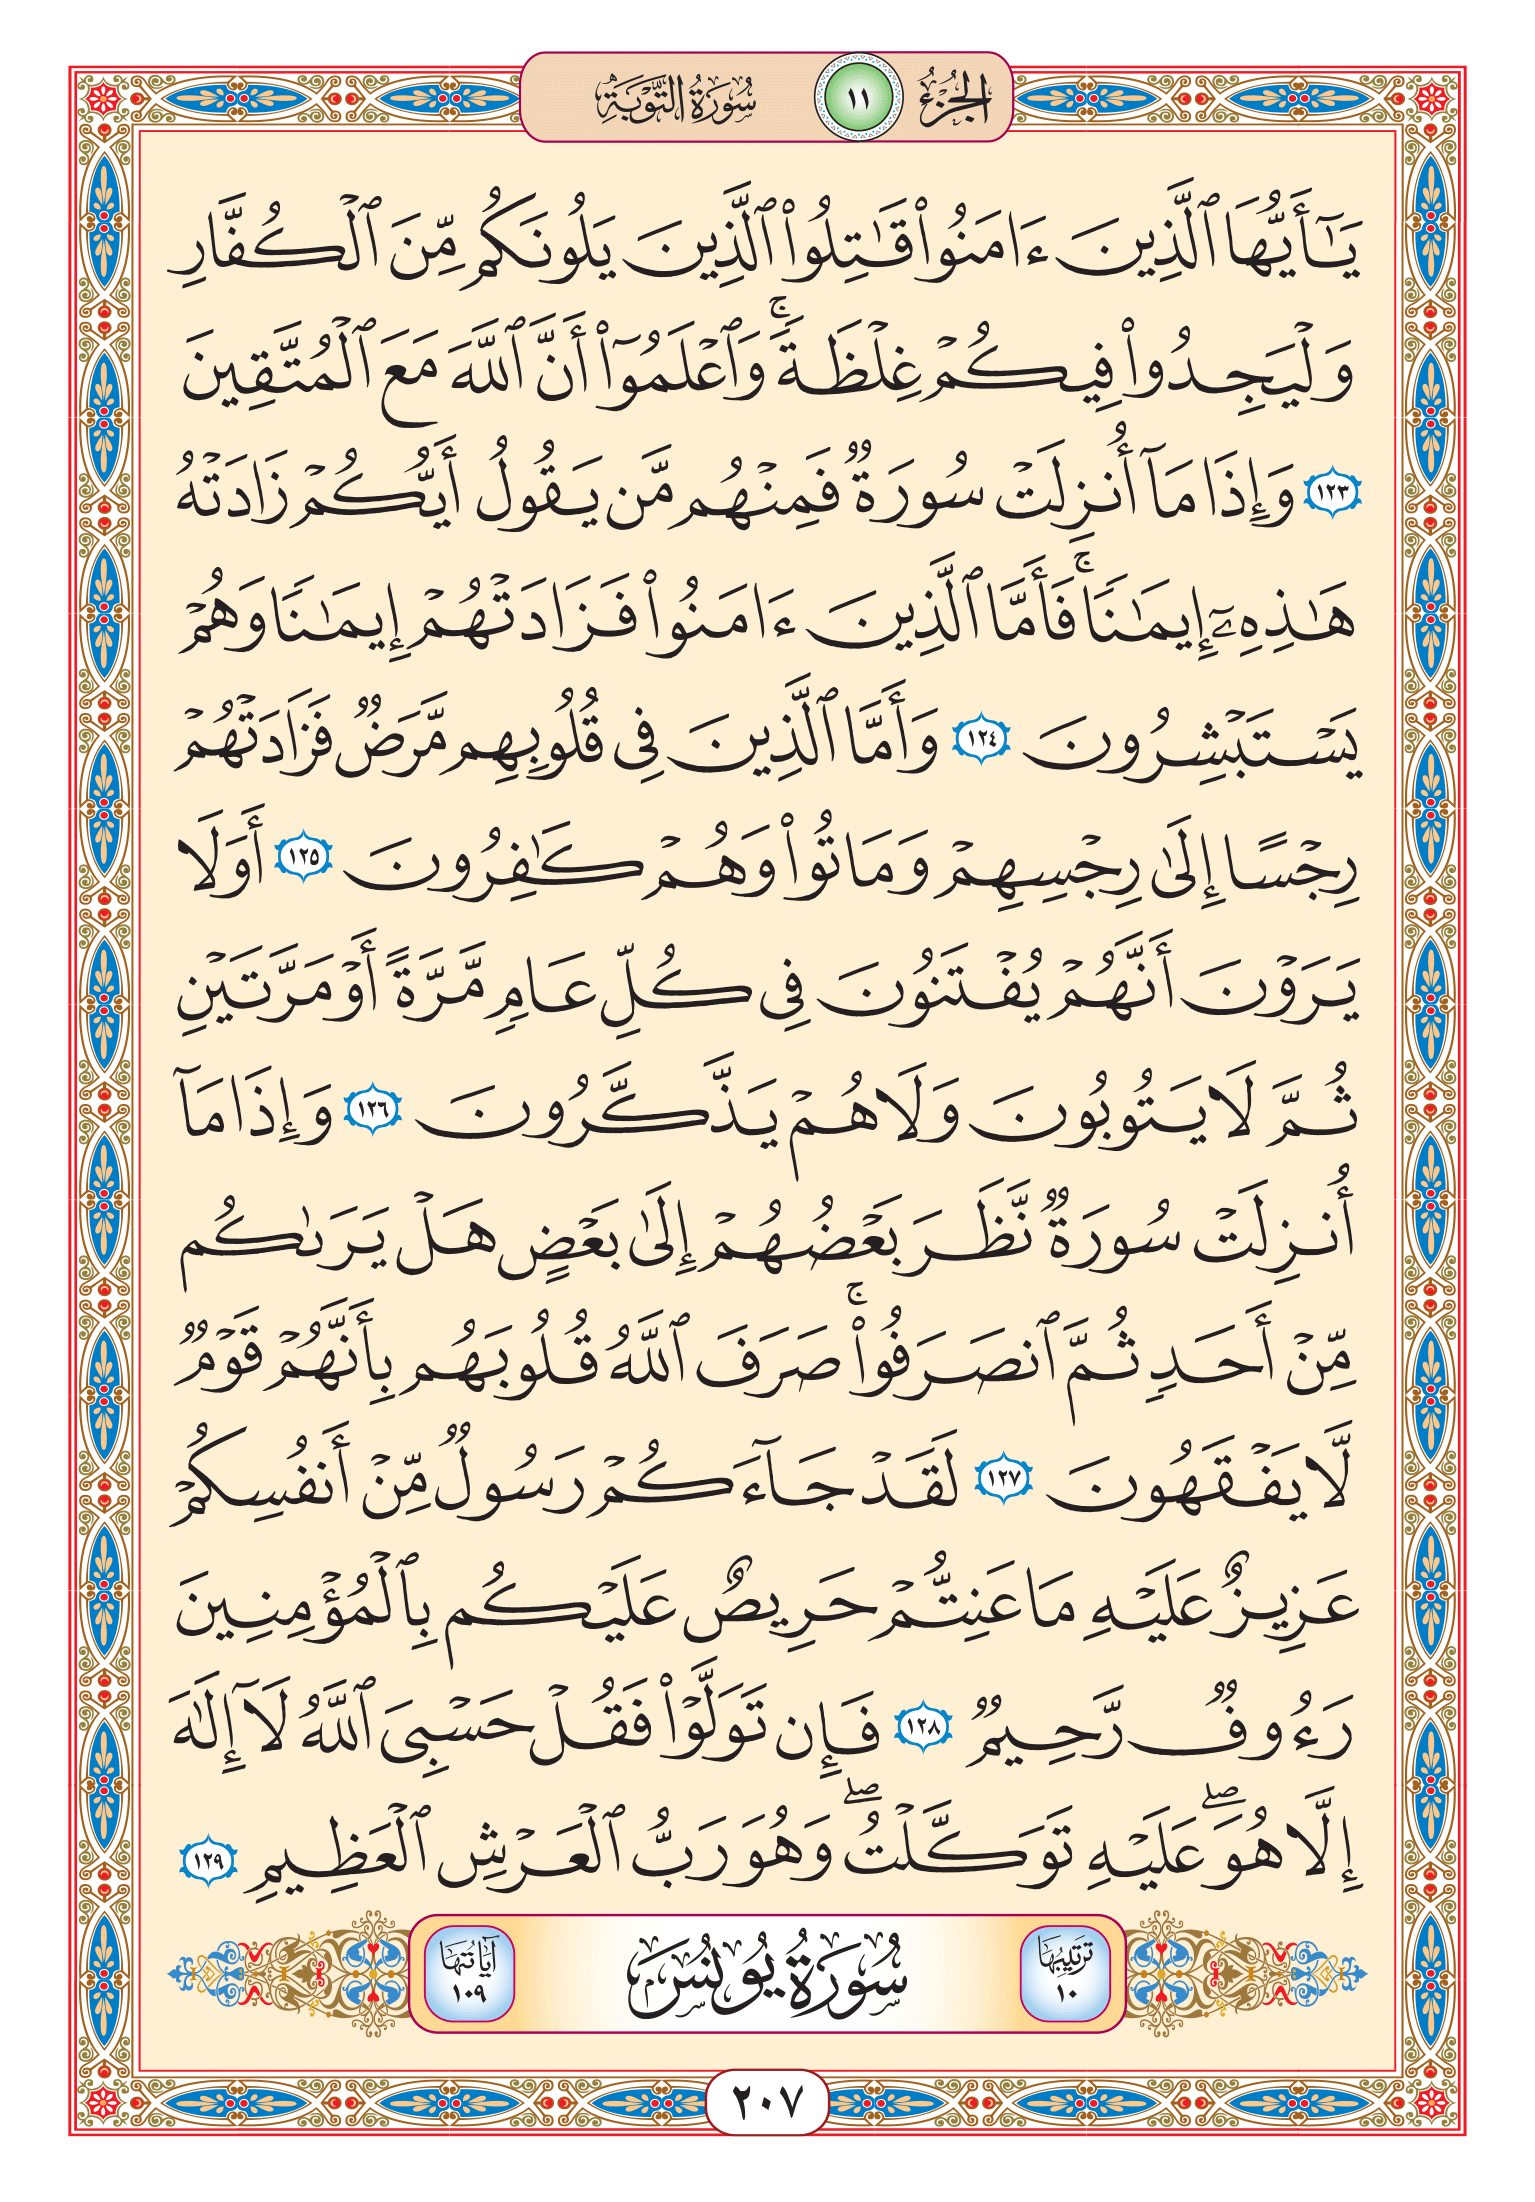 الجزء ١١ سورة التوبة
يَـٰٓأَيُّهَا ٱلَّذِينَ ءَامَنُوا۟ قَـٰتِلُوا۟ ٱلَّذِينَ يَلُونَكُم مِّنَ ٱلْكُفَّارِ
وَلْيَجِدُوا۟ فِيكُمْ غِلْظَةً ۚ وَٱعْلَمُوٓا۟ أَنَّ ٱللَّهَ مَعَ ٱلْمُتَّقِينَ
١٢٣ وَإِذَا مَآ أُنزِلَتْ سُورَةٌ فَمِنْهُم مَّن يَقُولُ أَيُّكُمْ زَادَتْهُ
هَـٰذِهِۦٓ إِيمَـٰنًا ۚ فَأَمَّا ٱلَّذِينَ ءَامَنُوا۟ فَزَادَتْهُمْ إِيمَـٰنًا وَهُمْ
يَسْتَبْشِرُونَ ١٢٤ وَأَمَّا ٱلَّذِينَ فِى قُلُوبِهِم مَّرَضٌ فَزَادَتْهُمْ
رِجْسًا إِلَىٰ رِجْسِهِمْ وَمَاتُوا۟ وَهُمْ كَـٰفِرُونَ ١٢٥ أَوَلَا
يَرَوْنَ أَنَّهُمْ يُفْتَنُونَ فِى كُلِّ عَامٍ مَّرَّةً أَوْ مَرَّتَيْنِ
ثُمَّ لَا يَتُوبُونَ وَلَا هُمْ يَذَّكَّرُونَ ١٢٦ وَإِذَا مَآ
أُنزِلَتْ سُورَةٌ نَّظَرَ بَعْضُهُمْ إِلَىٰ بَعْضٍ هَلْ يَرَىٰكُم
مِّنْ أَحَدٍ ثُمَّ ٱنصَرَفُوا۟ ۚ صَرَفَ ٱللَّهُ قُلُوبَهُم بِأَنَّهُمْ قَوْمٌ
لَّا يَفْقَهُونَ ١٢٧ لَقَدْ جَآءَكُمْ رَسُولٌ مِّنْ أَنفُسِكُمْ
عَزِيزٌ عَلَيْهِ مَا عَنِتُّمْ حَرِيصٌ عَلَيْكُم بِٱلْمُؤْمِنِينَ
رَءُوفٌ رَّحِيمٌ ١٢٨ فَإِن تَوَلَّوْا۟ فَقُلْ حَسْبِىَ ٱللَّهُ لَآ إِلَـٰهَ
إِلَّا هُوَ ۖ عَلَيْهِ تَوَكَّلْتُ ۖ وَهُوَ رَبُّ ٱلْعَرْشِ ٱلْعَظِيمِ ١٢٩
ترتيبها ١٠ سُورَةُ يُونُسَ آياتُها ١٠٩
٢٠٧